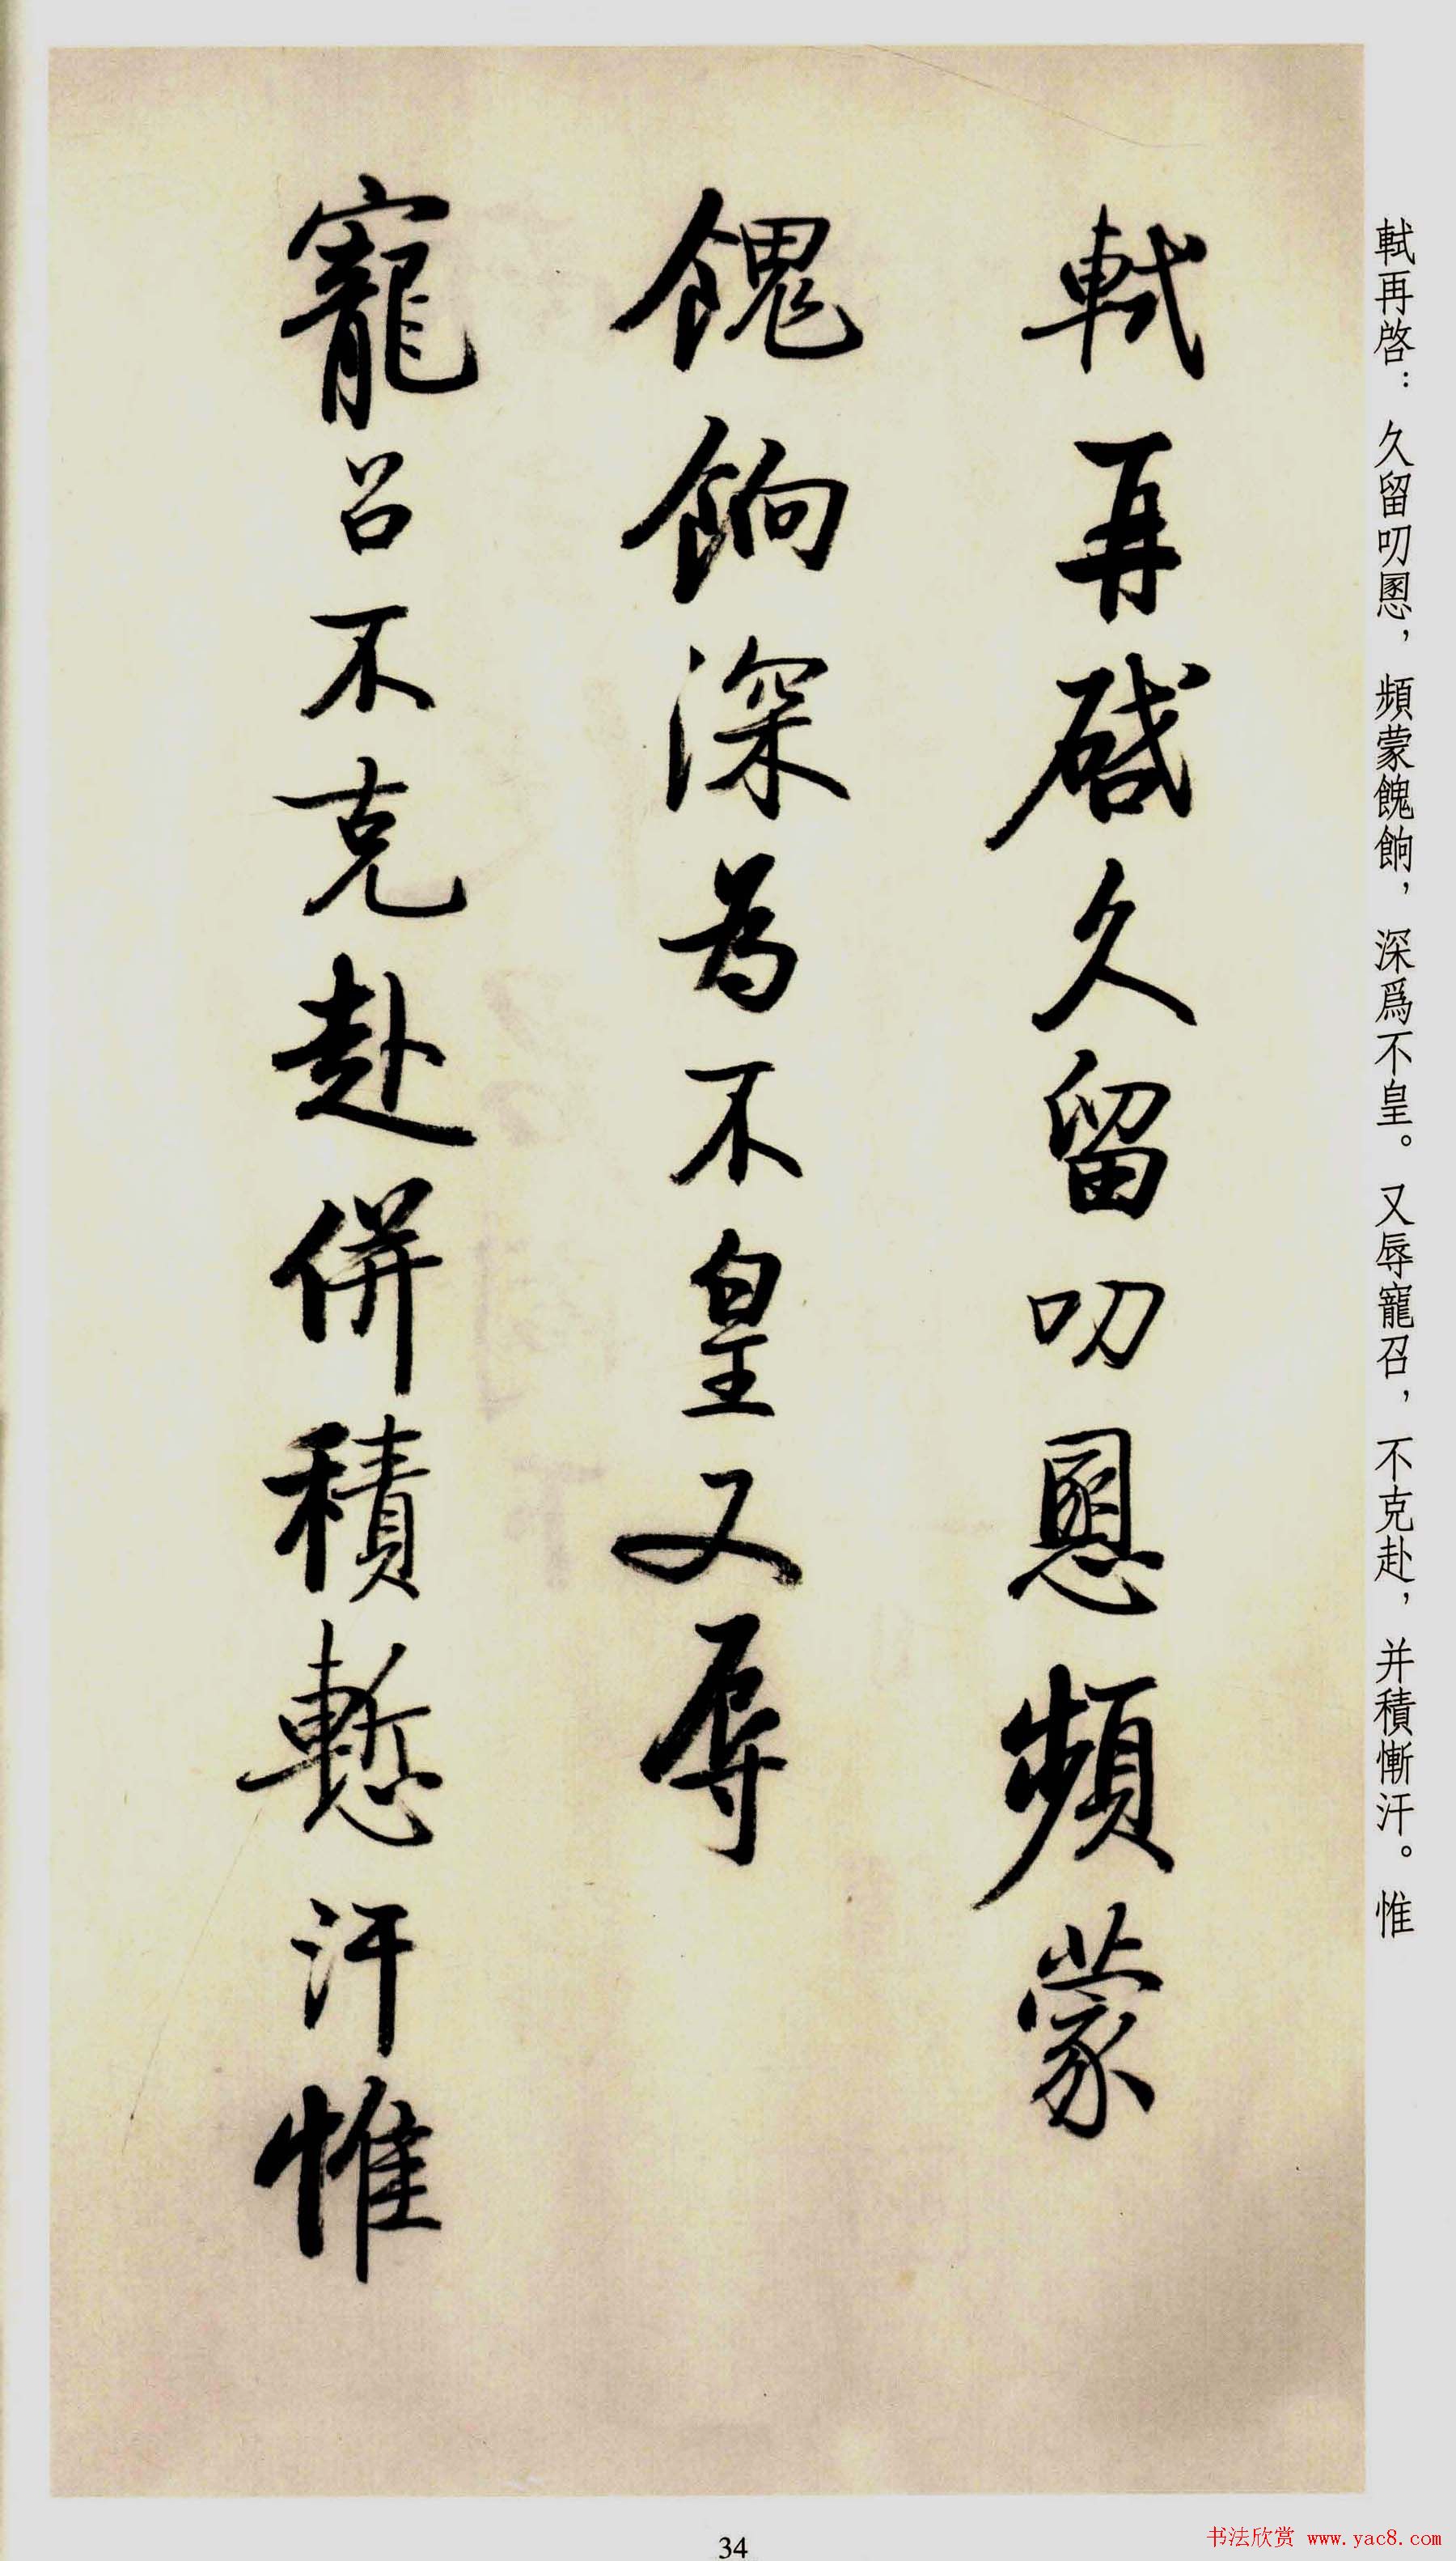 軾再啓：久留叨慁，頻蒙餽餉，深爲不皇。又辱寵召，不克赴，并積慚汗。惟
軾再啓久留叨慁頻蒙
餽餉深为不皇又辱
寵召不克赴併積慙汗惟
34
书法欣赏 www.yac8.com